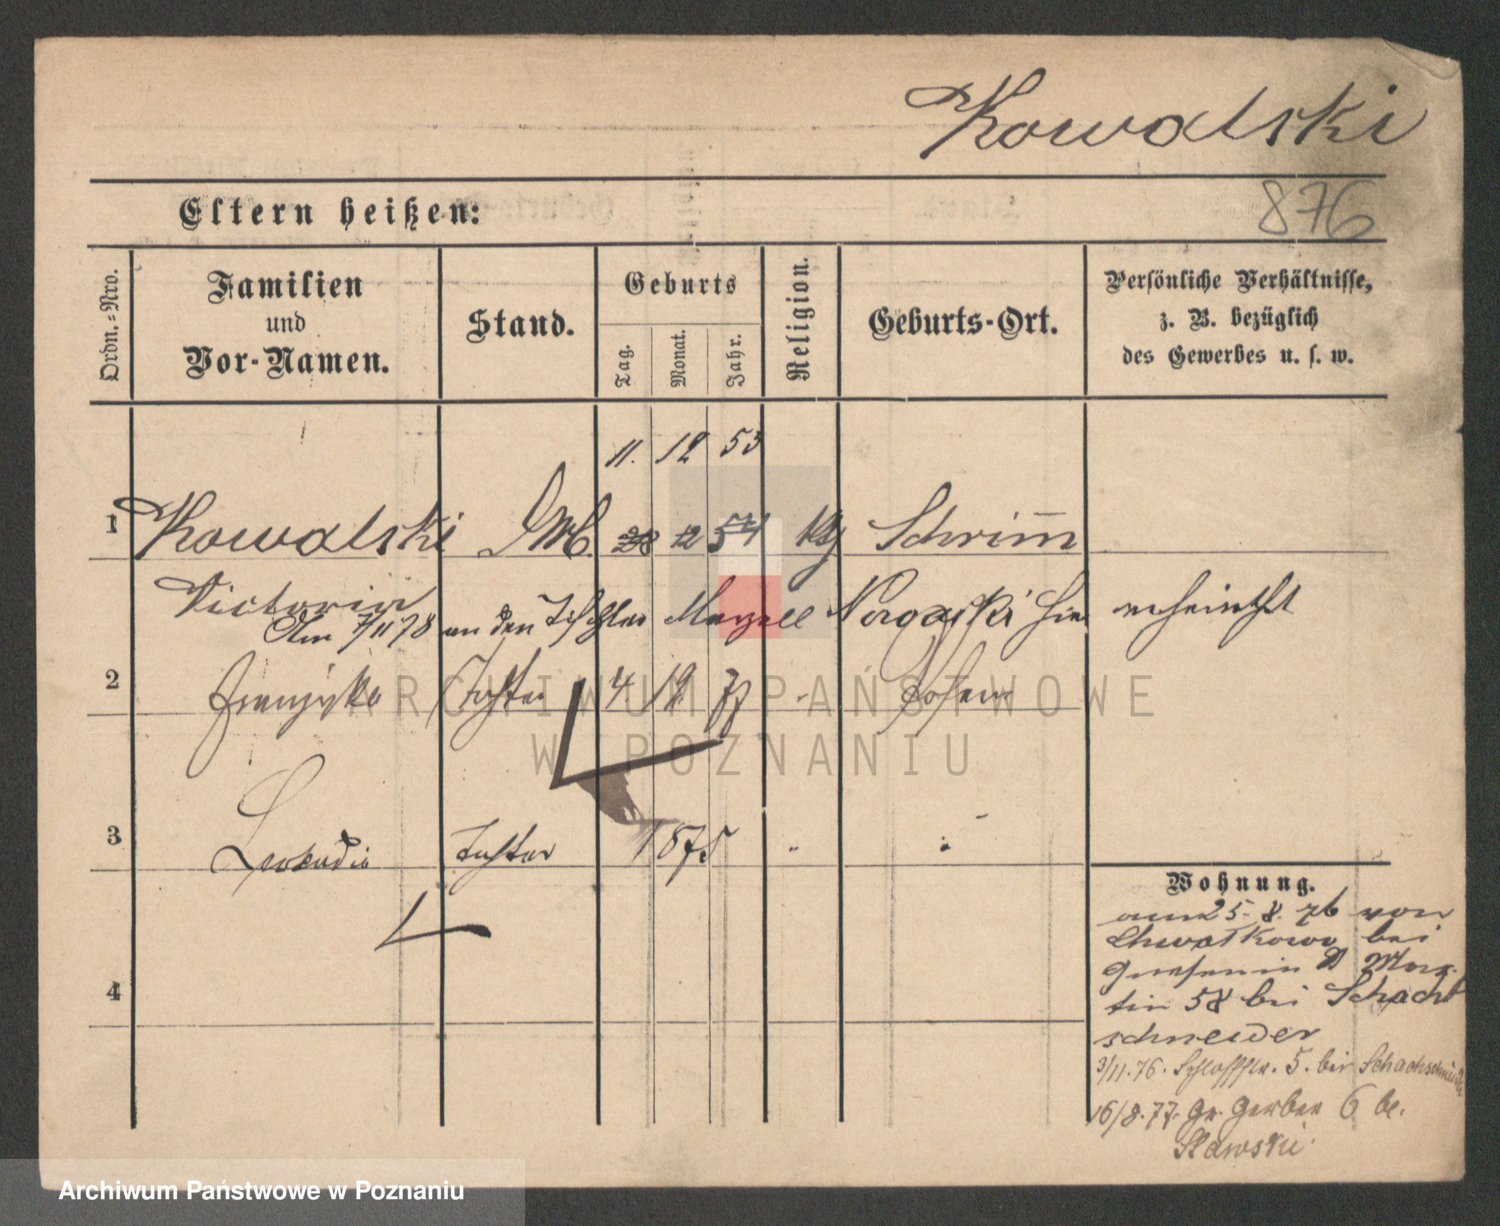 Kowalski
876
Eltern heißen:
Ordn.-Nro.
Familien
und
Vor-Namen.
Stand.
Geburts
Tag.
Monat.
Jahr.
Religion.
Geburts-Ort.
Persönliche Verhältnisse,
z. B. bezüglich
des Gewerbes u. s. w.
11. 12 53
1 Kowalski 28 12 54 Schrim̅
Victoria
Am 7/11 78 an den Marzell hier
2 Franziska Tochter 4 12 77 Posen
3 Leokadia Tochter 1875 "
4
Wohnung.
am 25. 8. 76 von
Chwalkowo bei
Gnesen in St Mar-
tin 58 bei Schacht
schneider
3/11.76. Schloßstr. 5. bei Schachschneider
16/8.77. Gr. Gerber 6 be.
Slawski
ARCHIWUM PAŃSTWOWE
W POZNANIU
Archiwum Państwowe w Poznaniu